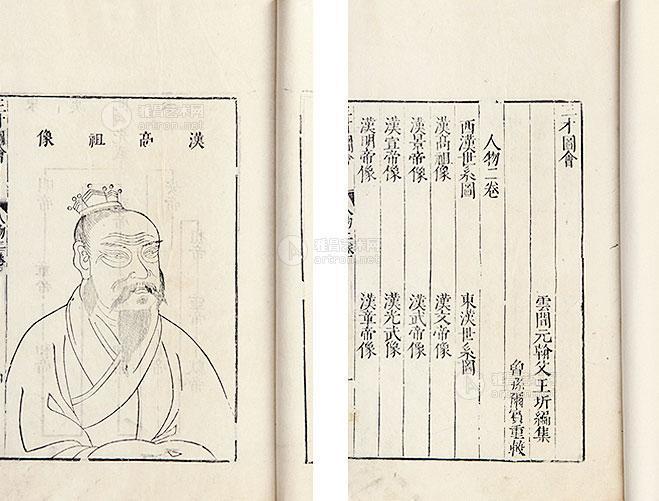 三才圖會
雲間元翰父王圻編集
曾孫爾賓重較
人物二卷
西漢世系圖
東漢世系圖
漢高祖像
漢文帝像
漢景帝像
漢武帝像
漢宣帝像
漢光武像
漢明帝像
漢章帝像
三才圖會
人物二卷
漢高祖像
三才圖會
人物二卷
雅昌艺术网
artron.net